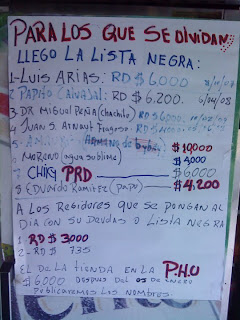 PARA LOS QUE SE DIVIDAN,
LLEGO LA LISTA NEGRA:
1-LUIS ARIAS: RD$6000
2- PAPITO CARVAJAL: RD $ 6.200. 6/04/08
3- DR MIGUEL PEÑA (chachita) RD$6000
4- JUAN S. Arnaut RD$
5- Hermano de $10,000
MORENO (agua sublime) $4000
7- CHIKY PRD $6000
8 EDUARDO RAMITEZ (papo) $4,200
A LOS REGIDORES QUE SE PONGAN AL
DIA CON SU DEUDAS O LISTA NEGRA
1- RD $ 3000
2- RD $ 735
EL DE LA TIENDA EN LA P.H.U
$6000 DESPUES DEL 05 DE ENERO
Publicaremos los Nombres.